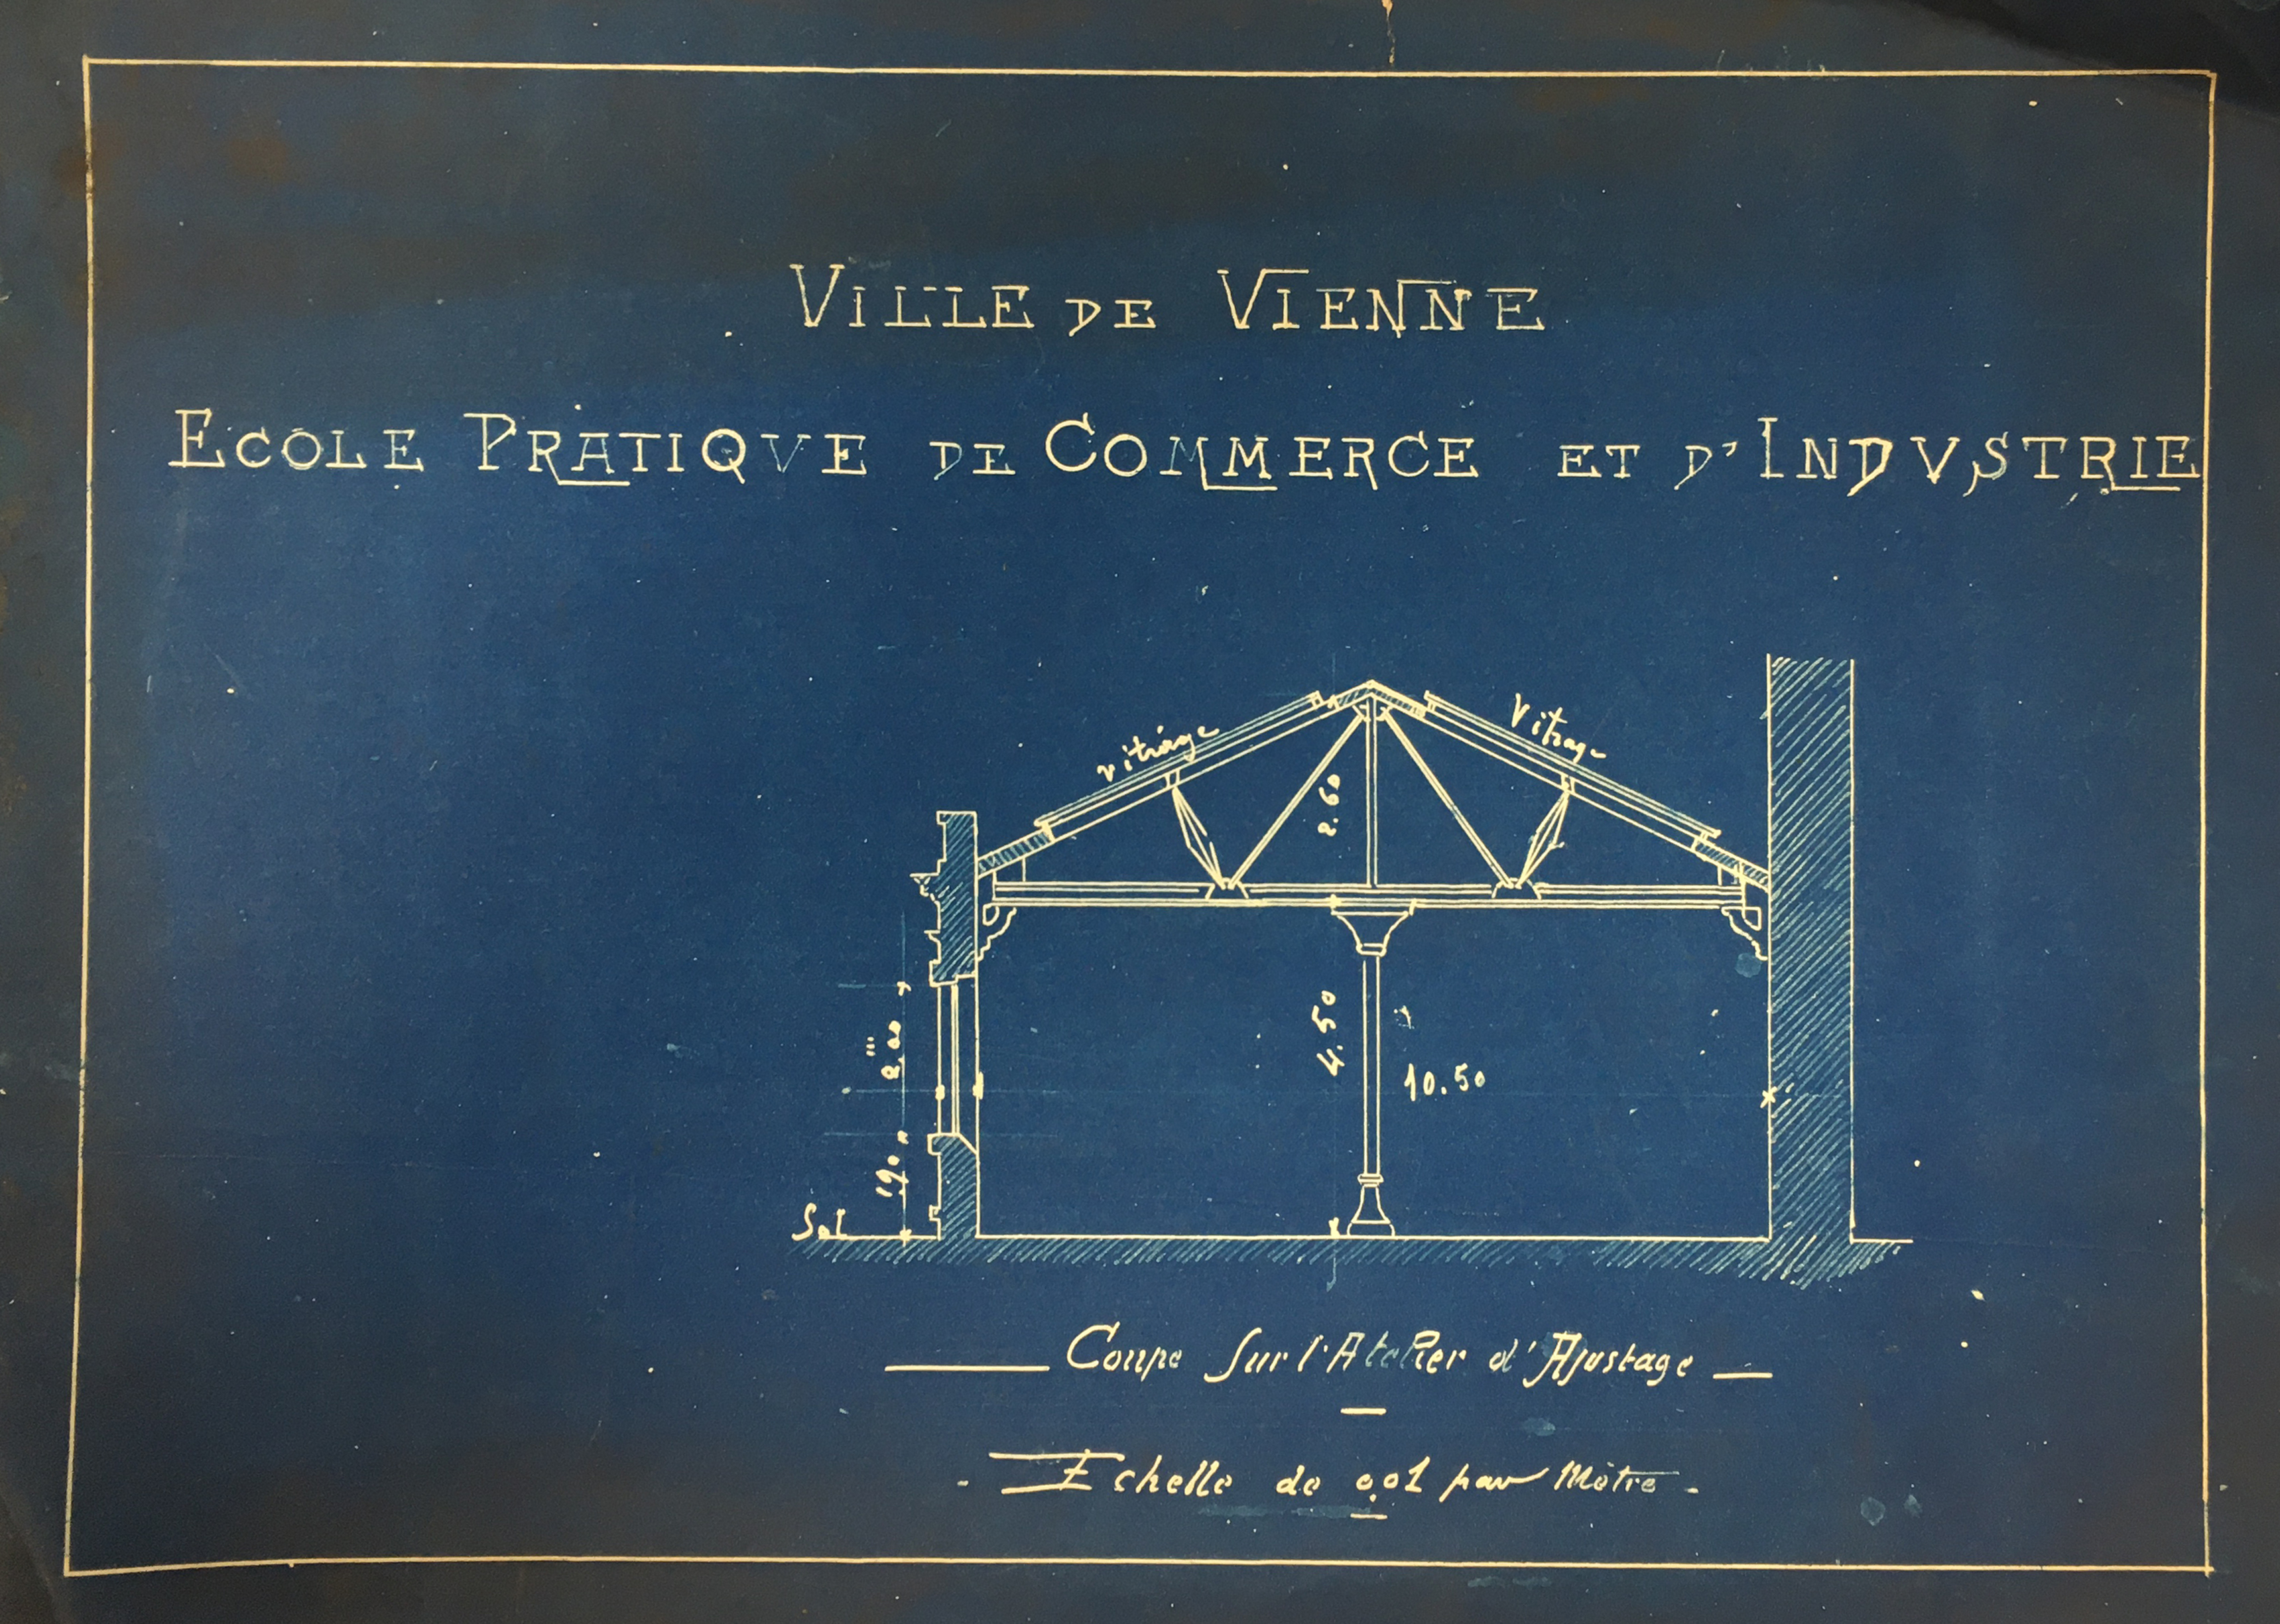 VILLE DE VIENNE
ECOLE PRATIQVE DE COMMERCE ET D'INDVSTRIE
vitrage
Vitrage
2.60
4.50
10.50
2.00
m
1.90
Sol
Coupe Sur l'Atelier d'Ajustage
Echelle de 0.01 par Mètre